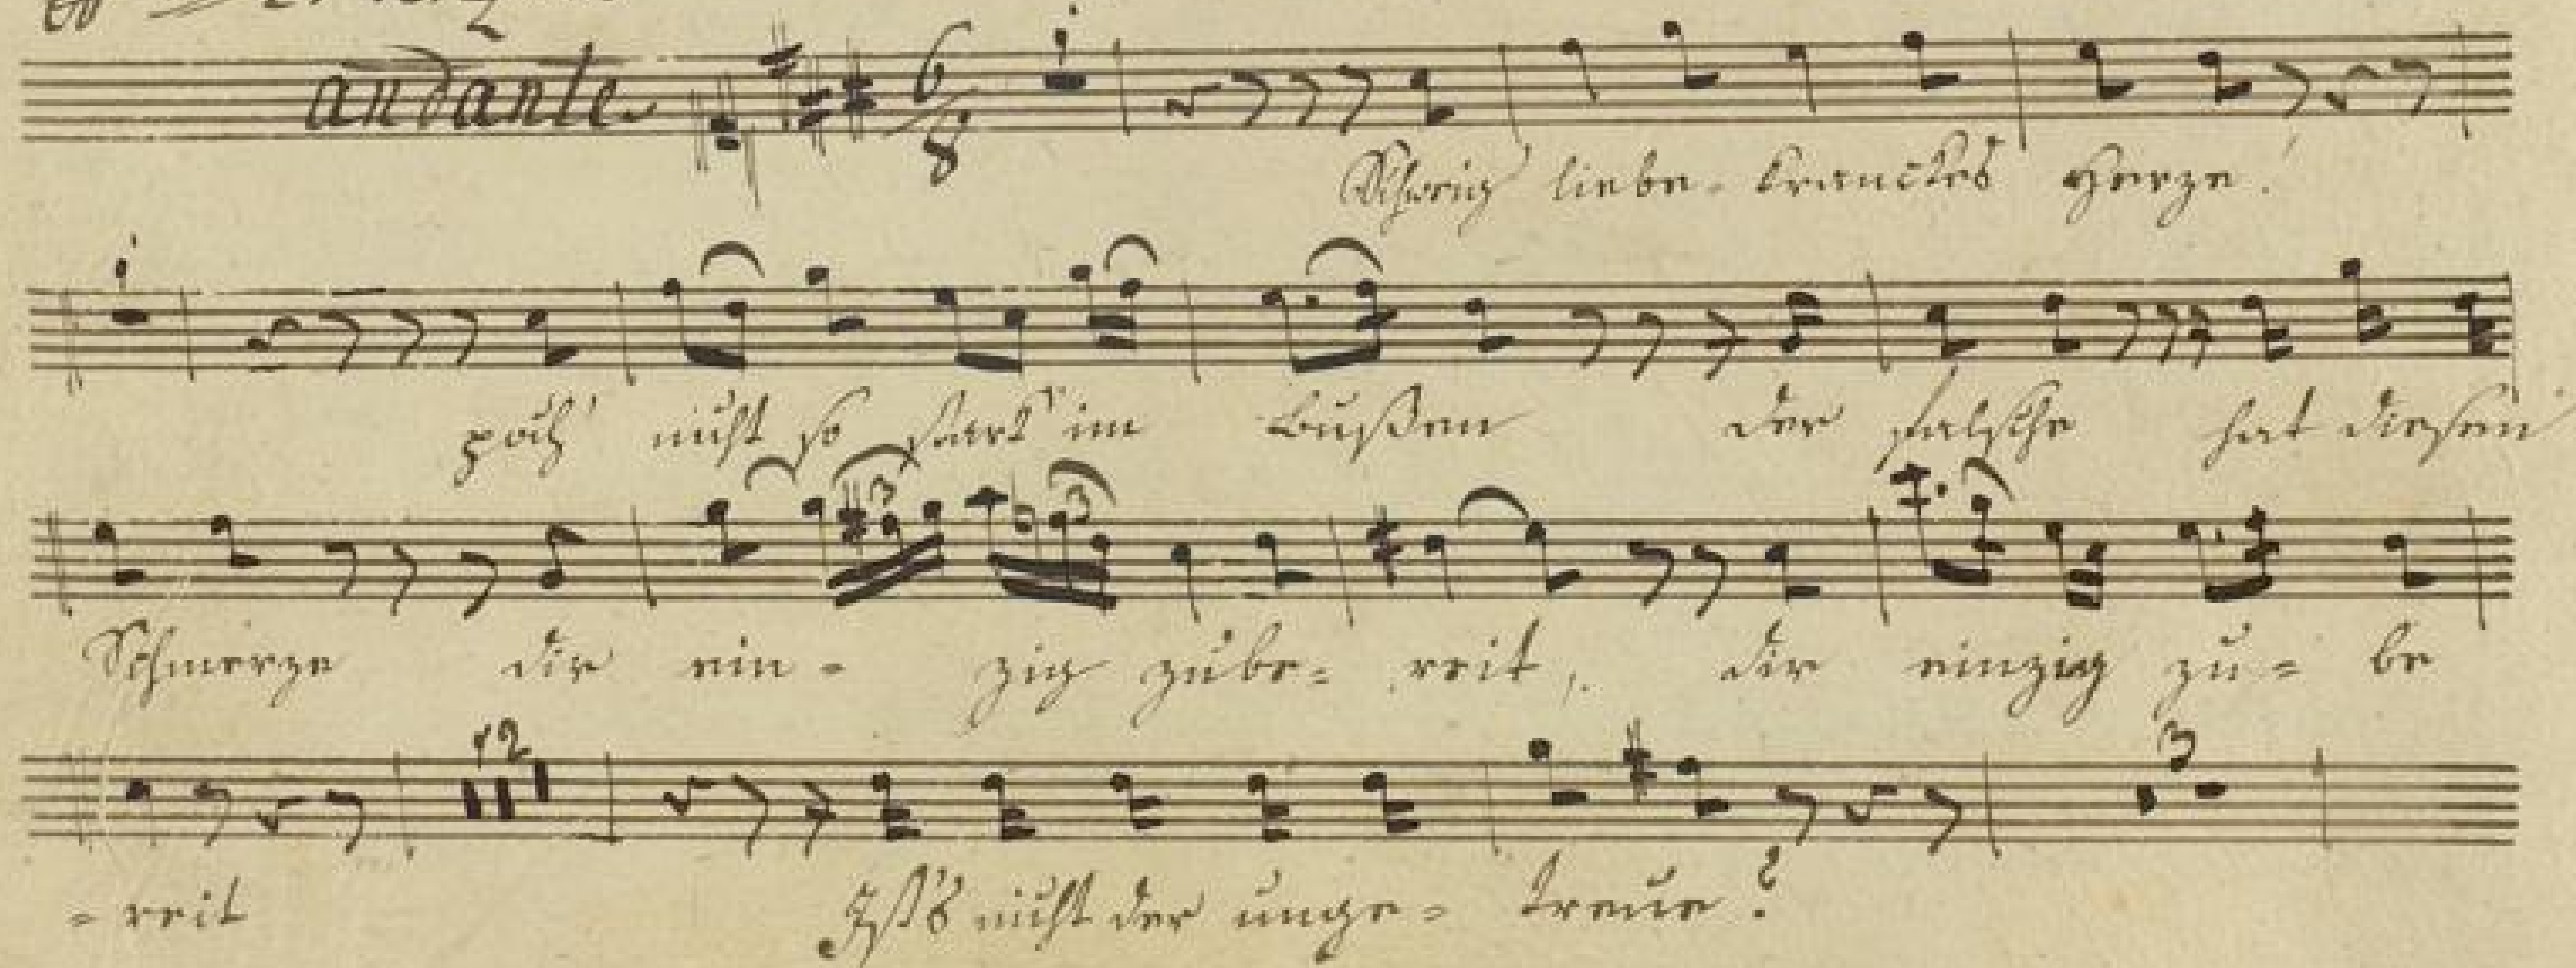 andante 6/8
Schweig liebe- kranckes Herze!
poch' nicht so stark im Bußen der falsche hat diesen
3 3
Schmerze dir ein- zig zube= reit, dir einzig zu= be
12 3
= reit Ists nicht der unge= treue?